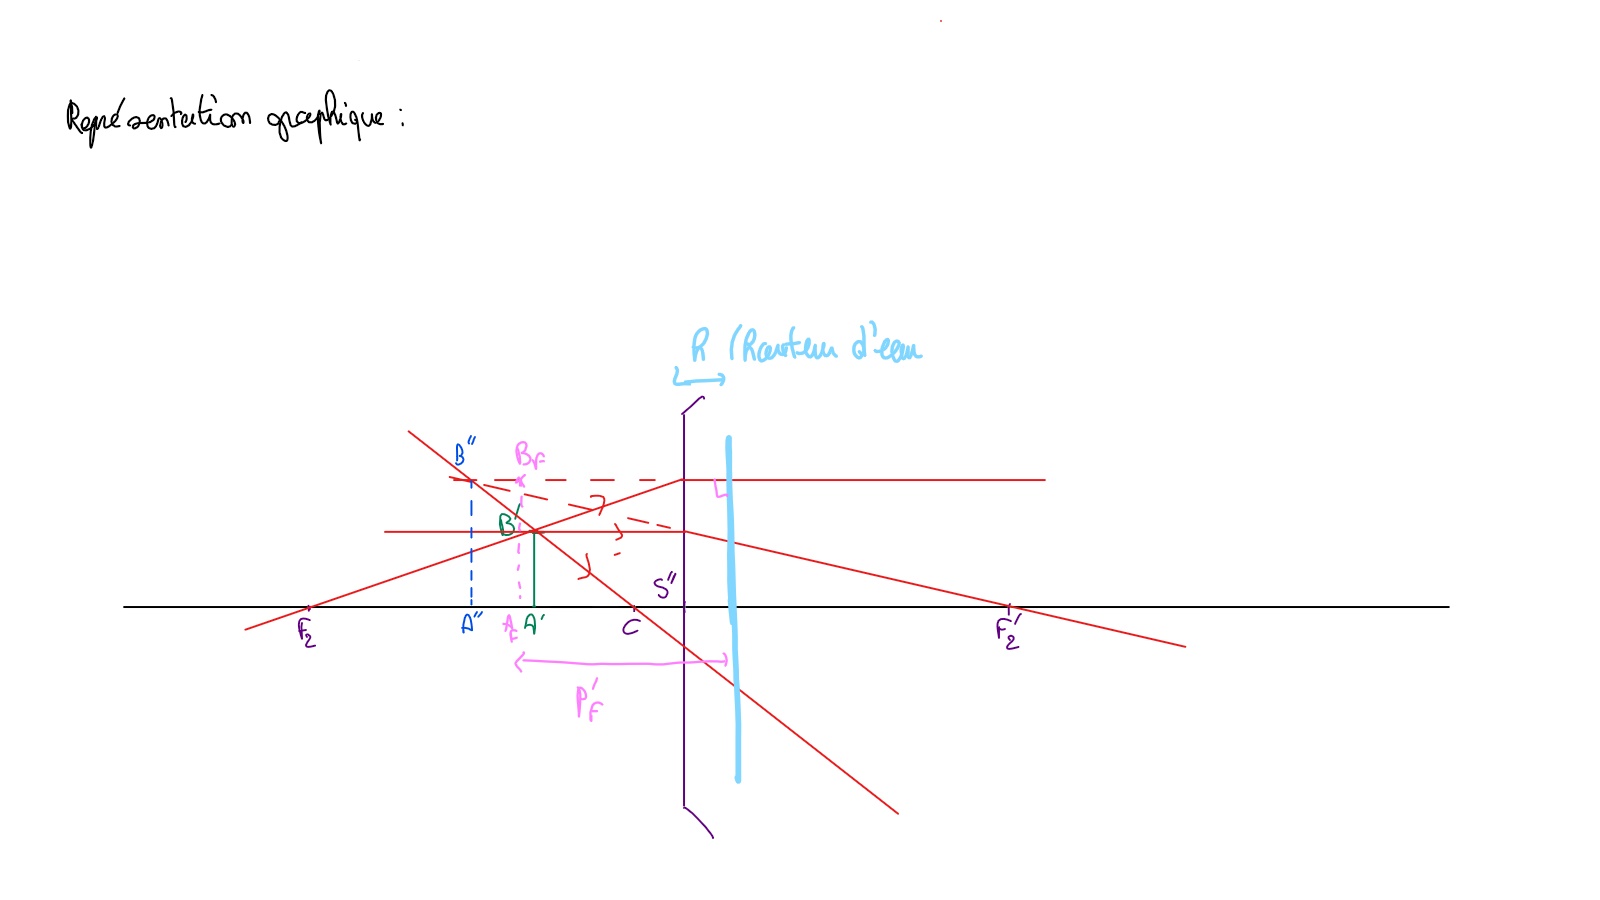 Représentation graphique :
h (hauteur d'eau
B" B_F
B'
S"
F₂ A" A_F A' C F₂'
P'_F